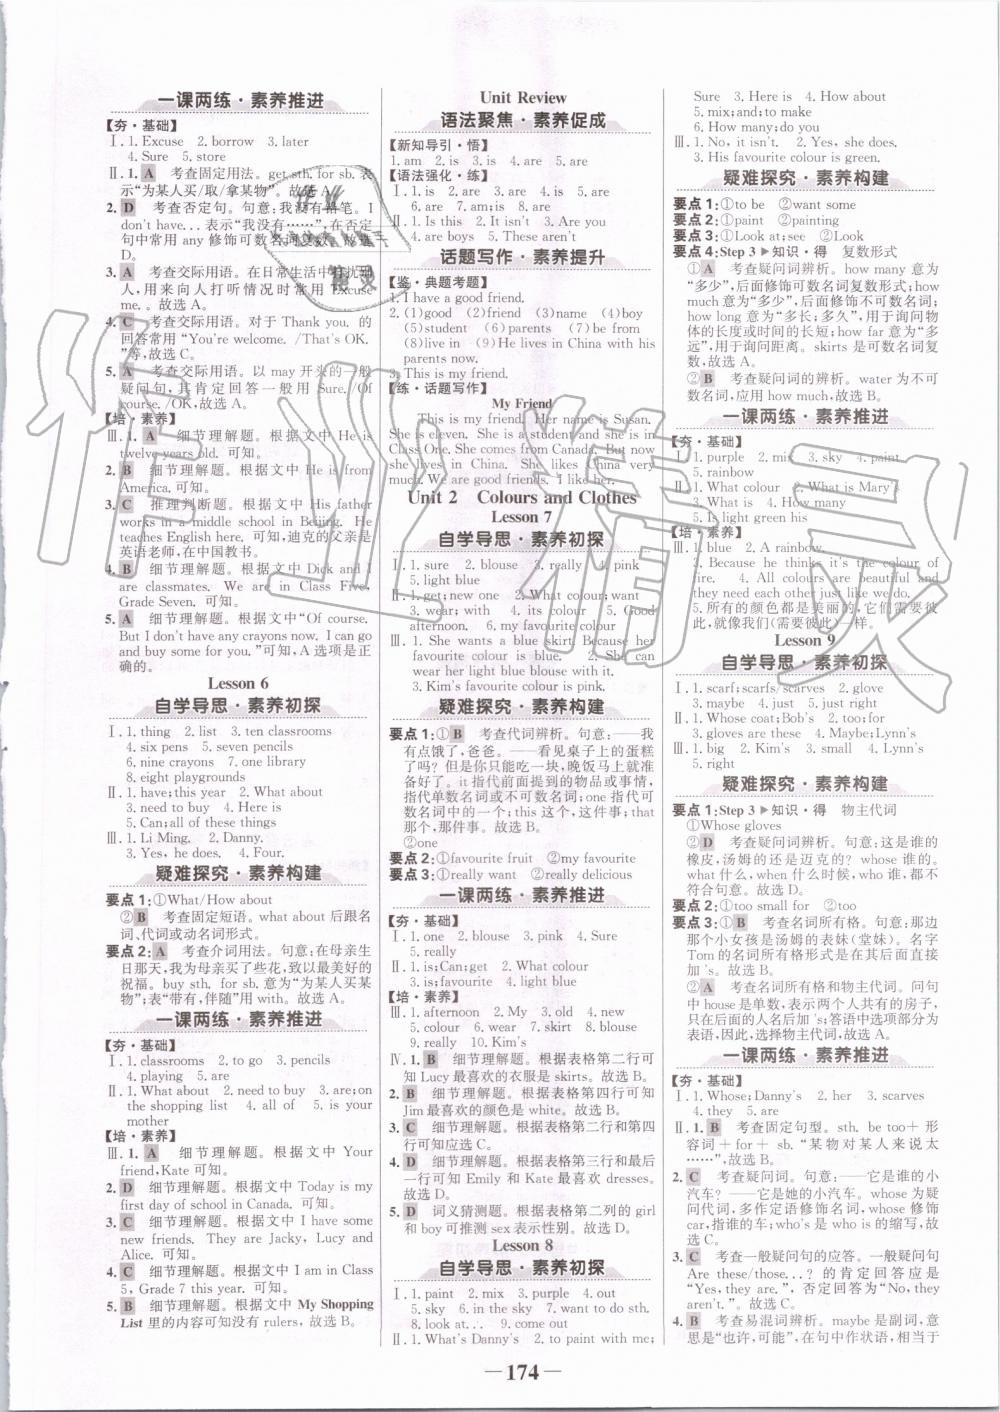 一课两练·素养推进
【夯·基础】
Ⅰ. 1. Excuse 2. borrow 3. later
4. Sure 5. store
Ⅱ. 1. A 考查固定用法。get sth. for sb. 表
示“为某人买/取/拿某物”。故选 A。
2. D 考查否定句。句意:我没有
笔。I
don't have... 表示“我没有……”,在否定
句中常用 any 修饰可数名词复数。故选
D。
3. A 考查交际用语。在日常生活中打扰别
人,用来向人打听时用 Excuse
me.。故选 A。
4. C 考查交际用语。对于 Thank you. 的
回答常用“You're welcome. /That's OK.
”等,故选 C。
5. A 考查交际用语。以 may 开头的一般
疑问句,其肯定回答一般用 Sure. /Of
course. /OK,故选 A。
【培·素养】
Ⅲ. 1. A 细节理解题。根据文中 He is
twelve years old. 可知。
2. B 细节理解题。根据文中 He is from
America. 可知。
3. C 推理判断题。根据文中 His father
works in a middle school in Beijing. He
teaches English here. 可知,迪克的父亲是
英语老师,在中国教书。
4. B 细节理解题。根据文中 Dick and I
are classmates. We are in Class Five,
Grade Seven. 可知。
5. A 细节理解题。根据文中“Of course.
But I don't have any crayons now. I can go
and buy some for you.”可知,A 选项是正
确的。
Lesson 6
自学导思·素养初探
Ⅰ. 1. thing 2. list 3. ten classrooms
4. six pens 5. seven pencils
6. nine crayons 7. one library
8. eight playgrounds
Ⅱ. 1. have; this year 2. What about
3. need to buy 4. How many
5. Can; all of these things
Ⅲ. 1. Li Ming. 2. Danny.
3. Yes, he does. 4. Four.
疑难探究·素养构建
要点 1: ①What/How about
②B 考查固定短语。what about 后跟名
词、代词或动名词形式。
要点 2: A 考查介词用法。句意:在母亲生
日那天,我为母亲买了些花,致以最美好的
祝福。buy sth. for sb. 意为“为某人买某
物”;表“带有,伴随”用 with。故选 A。
一课两练·素养推进
【夯·基础】
Ⅰ. 1. classrooms 2. to go 3. pencils
4. playing 5. are
Ⅱ. 1. What about 2. need to buy 3. are; on
the shopping list 4. all of 5. is your
mother
【培·素养】
Ⅲ. 1. A 细节理解题。根据文中 Your
friend, Kate 可知。
2. D 细节理解题。根据文中 Today is my
first day of school in Canada. 可知。
3. C 细节理解题。根据文中 I have some
new friends. They are Jacky, Lucy and
Alice. 可知。
4. C 细节理解题。根据文中 I am in Class
5, Grade 7 this year. 可知。
5. B 细节理解题。根据文中 My Shopping
List 里的内容可知没有 rulers, 故选 B。
Unit Review
语法聚焦·素养促成
【新知导引·悟】
1. am 2. is 3. is 4. are 5. are
【语法强化·练】
Ⅰ. 1. is 2. are 3. are 4. is 5. are
6. are 7. am; is 8. are
Ⅱ. 1. Is this 2. It isn't 3. Are you
4. are boys 5. These aren't
话题写作·素养提升
【鉴·典题考题】
1. I have a good friend.
2. (1)good (2)friend (3)name (4)boy
(5)student (6)parents (7)both
(8)live in (9)He lives in China with his
parents now.
3. This is my friend.
【练·话题写作】
My Friend
This is my friend. Her name is Susan.
She is eleven. She is a student and she is in
Class One. She comes from Canada. But now
she lives in China. She likes China very
much. We are good friends. I like her.
Unit 2 Colours and Clothes
Lesson 7
自学导思·素养初探
Ⅰ. 1. sure 2. blouse 3. really 4. pink
5. light blue
Ⅱ. 1. get; new one 2. What colour; want
3. wear; with 4. its colour 5. Good
afternoon. 6. my favourite colour
Ⅲ. 1. She wants a blue skirt. Because her
favourite colour is blue. 2. She can
wear her light blue blouse with it.
3. Kim's favourite colour is pink.
疑难探究·素养构建
要点 1: ①B 考查代词辨析。句意:——我
有点饿了,爸爸。——看见桌子上的蛋糕
了吗? 但是你只能吃一块,晚饭马上就准
备好了。it 指代前面提到的物品或事情,
指代单数名词或不可数名词;one 指代可
数名词中的一个;this 这个,这件事;that
那个,那件事。故选 B。
②one
要点 2: ①favourite fruit ②my favourite
要点 3: ①really want ②really delicious
一课两练·素养推进
【夯·基础】
Ⅰ. 1. one 2. blouse 3. pink 4. Sure
5. really
Ⅱ. 1. is; Can; get 2. What colour
3. is; favourite 4. light blue
【培·素养】
Ⅲ. 1. afternoon 2. My 3. old 4. new
5. colour 6. wear 7. skirt 8. blouse
9. really 10. with
Ⅳ. 1. B 细节理解题。根据表格第二行可
知 Lucy 最喜欢的衣服是 skirts。故选 B。
2. B 细节理解题。根据表格第四行可知
Jim 最喜欢的颜色是 white。故选 B。
3. C 细节理解题。根据表格第二行和第四
行可知应选 C。
4. D 细节理解题。根据表格第三行和最后
一行可知 Emily 和 Kate 最喜欢 dresses。
故选 D。
5. D 词义猜测题。根据表格第二列的 girl
和 boy 可推测 sex 表示性别。故选 D。
Lesson 8
自学导思·素养初探
Ⅰ. 1. paint 2. mix 3. purple 4. out
5. sky 6. in the sky 7. want to do sth.
8. look at... 9. come out
Ⅱ. 1. What's Danny's 2. to paint with me;
Sure 3. Here is 4. How about
5. mix; and; to make
6. How many; do you
Ⅲ. 1. No, it isn't. 2. Yes, she does.
3. His favourite colour is green.
疑难探究·素养构建
要点 1: ①to be ②want some
要点 2: ①paint ②painting
要点 3: ①Look at; see ②Look
要点 4: Step 3▶知识·得 复数形式
①A 考查疑问词辨析。how many 意为
“多少”,后面修饰可数名词复数形式;how
much 意为“多少”,后面修饰不可数名词;
how long 意为“多长;多久”,用于询问物
体的长度或时间的长短;how far 意为“多
远”,用于询问距离。skirts 是可数名词复
数,故选 A。
②B 考查疑问词的辨析。water 为不可
数名词,应用 how much,故选 B。
一课两练·素养推进
【夯·基础】
Ⅰ. 1. purple 2. mix 3. sky 4. paint
5. rainbow
Ⅱ. 1. What colour 2. What is Mary's
3. What is 4. How many
5. Is light green his
【培·素养】
Ⅲ. 1. blue 2. A rainbow.
3. Because he thinks it's the colour of
fire. 4. All colours are beautiful and
they need each other just like we do.
5. 所有的颜色都是美丽的,它们需要彼
此,就像我们(需要彼此)一样。
Lesson 9
自学导思·素养初探
Ⅰ. 1. scarf; scarfs/scarves 2. glove
3. maybe 4. just 5. just right
Ⅱ. 1. Whose coat; Bob's 2. too; for
3. gloves are these 4. Maybe; Lynn's
Ⅲ. 1. big 2. Kim's 3. small 4. Lynn's
5. right
疑难探究·素养构建
要点 1: Step 3▶知识·得 物主代词
①Whose gloves
②D 考查疑问词辨析。句意:这是谁的
橡皮,汤姆的还是迈克的? whose 谁的。
what 什么,when 什么时候,who 谁,都不
符合句意。故选 D。
要点 2: ①too small for ②too
要点 3: ①B 考查名词所有格。句意:那边
那个小女孩是汤姆的表妹(堂妹)。名字
Tom 的名词所有格形式是在其后面直接
加 's。故选 B。
②A 考查名词所有格和物主代词。问句
中 house 是单数,表示两个人共有的房子,
只在后面的人名后加 's;答语中选项部分为
表语,因此,选择物主代词,故选 A。
一课两练·素养推进
【夯·基础】
Ⅰ. 1. Whose; Danny's 2. her 3. scarves
4. they 5. are
Ⅱ. 1. B 考查固定句型。sth. be too+形
容词+for+sb. “某物对某人来说太
……”,故选 B。
2. C 考查疑问词。句意:——它是谁的小
汽车? ——它是她的小汽车。whose 为疑
问代词,多作定语修饰名词,whose 修饰
car,指谁的车;who's 是 who is 的缩写,故
选 C。
3. C 考查一般疑问句的应答。一般疑问句
Are these/those...? 的肯定回答应是
“Yes, they are.”,否定回答为“No, they
aren't.”。故选 C。
4. B 考查易混词辨析。maybe 是副词,意
思是“也许,可能”,在句中作状语,相当于
— 174 —
作业精灵